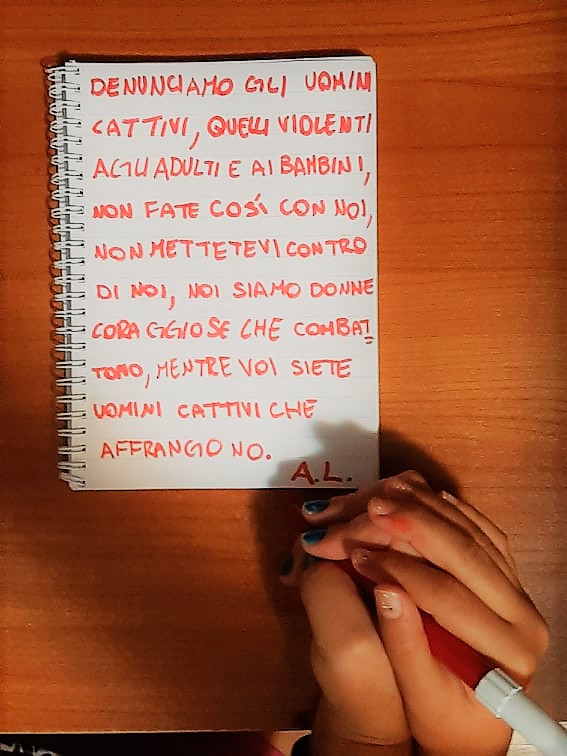 DENUNCIAMO GLI UOMINI
CATTIVI, QUELLI VIOLENTI
AGLI ADULTI E AI BAMBINI,
NON FATE COSÍ CON NOI,
NON METTETEVI CONTRO
DI NOI, NOI SIAMO DONNE
CORAGGIOSE CHE COMBAT
TONO, MENTRE VOI SIETE
UOMINI CATTIVI CHE
AFFRANGONO.
A.L.